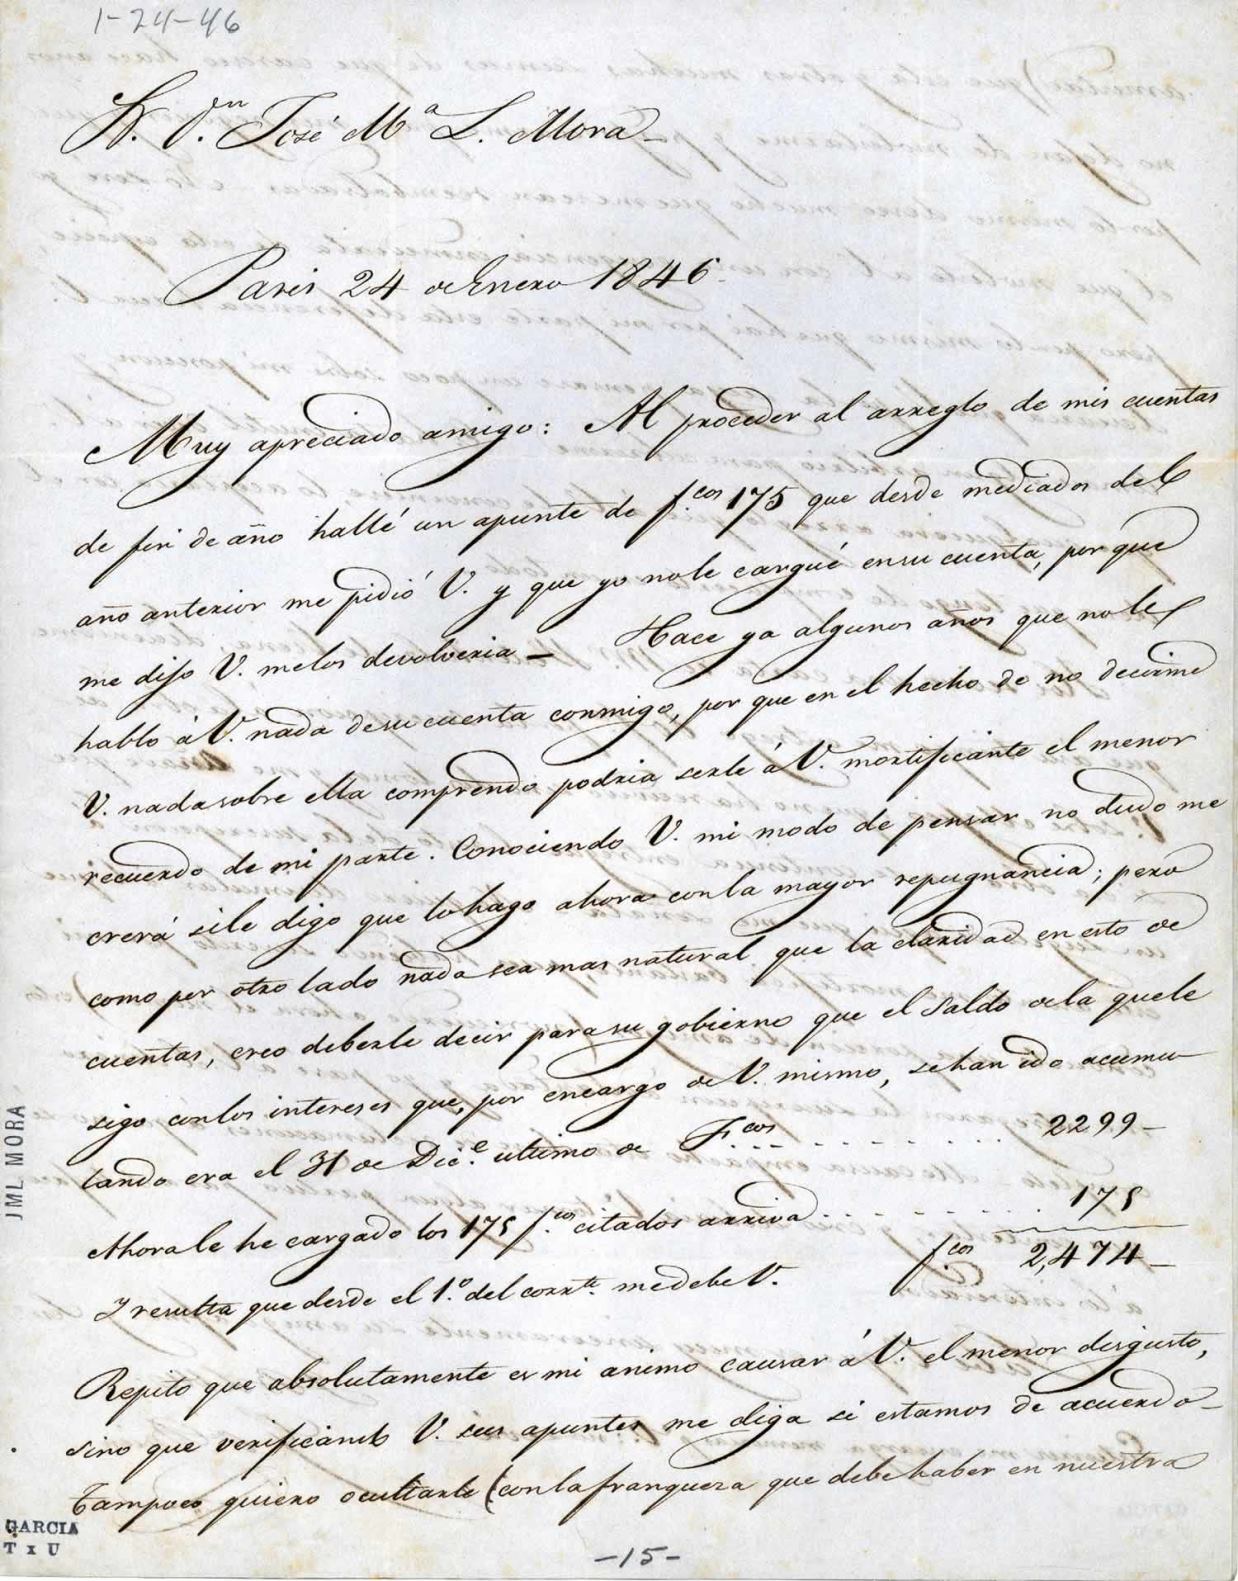 1-24-46
S. D.n José M.a L. Mora
Paris 24 de Enero 1846.
Muy apreciado amigo: Al proceder al arreglo de mis cuentas
de fin de año hallé un apunte de f.cos 175 que desde mediados del
año anterior me pidió V. y que yo no le cargué en su cuenta, por que
me dijo V. me los devolveria — Hace ya algunos años que no le
hablo á V. nada de su cuenta conmigo, por que en el hecho de no decirme
V. nada sobre ella comprendo podria serle á V. mortificante el menor
recuerdo de mi parte. Conociendo V. mi modo de pensar no dudo me
crerá si le digo que lo hago ahora con la mayor repugnancia; pero
como por otro lado nada sea mas natural que la claridad en esto de
cuentas, creo deberle decir para su gobierno que el Saldo de la que le
sigo con los intereses que, por encargo de V. mismo, se han ido acumu
lando era el 31 de Dic.e ultimo de F.cos . . . . . . . . 2299—
Ahora le he cargado los 175 f.cos citados arriva . . . . . . . . 175
Y resulta que desde el 1.o del corr.te me debe V. f.cos 2,474—
Repito que absolutamente es mi animo causar á V. el menor disgusto,
sino que verificando V. sus apuntes me diga si estamos de acuerdo—
Tampoco quiero ocultarle (con la franqueza que debe haber en nuestra
JML MORA
GARCIA
T x U
-15-